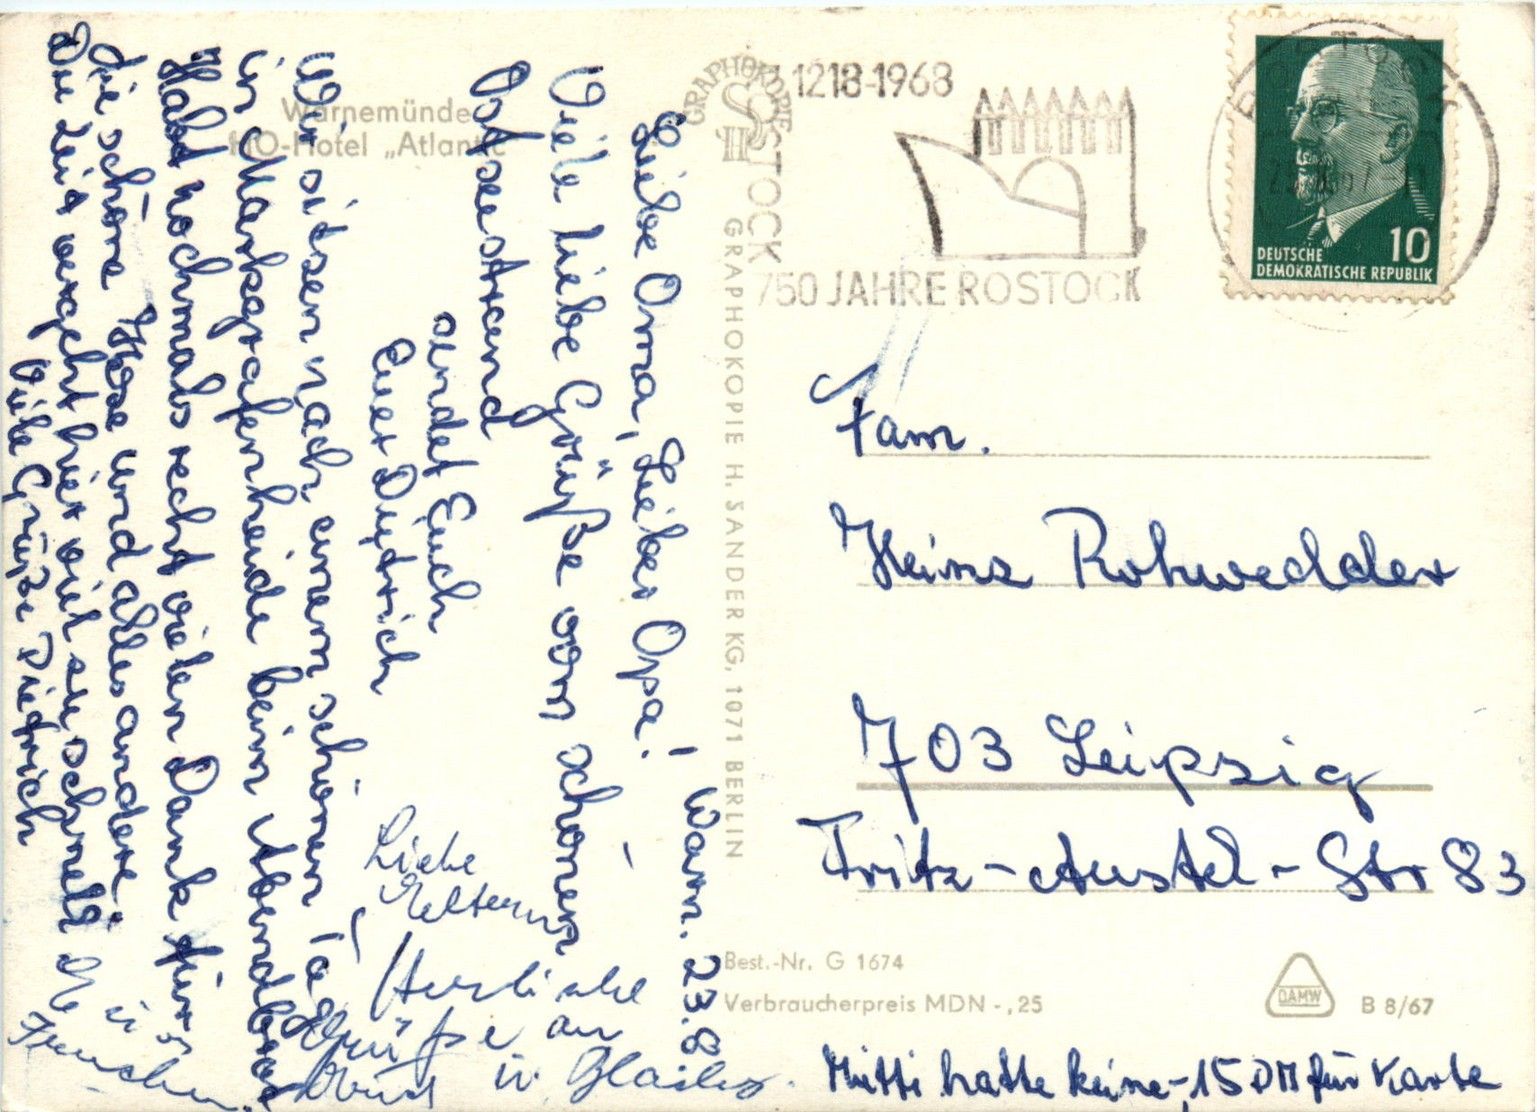 Warnemünde
HO-Hotel „Atlantic“
Warn. 23.8
Liebe Oma, Lieber Opa!
Viele liebe Grüße vom schönen
Ostseestrand
sendet Euch
Euer Dietrich
Wir sitzen nach einem schönen Tag
in Markgrafenheide beim Abendbrot
Habt nochmals recht vielen Dank für
die schöne Hose und alles andere.
Die Zeit vergeht hier viel zu schnell
Viele Grüße Dietrich
Liebe
Eltern,
Herzliche
Grüße an
u.
GRAPHOKOPIE
H S
GRAPHOKOPIE H. SANDER KG, 1071 BERLIN
ROSTOCK
1218-1968
750 JAHRE ROSTOCK
ROSTOCK
10
DEUTSCHE
DEMOKRATISCHE REPUBLIK
Fam.
Heinz Rohwedder
703 Leipzig
Fritz-Austel-Str 83
Best.-Nr. G 1674
Verbraucherpreis MDN -,25
DAMW
B 8/67
Mutti hatte keine -,15 DM für Karte